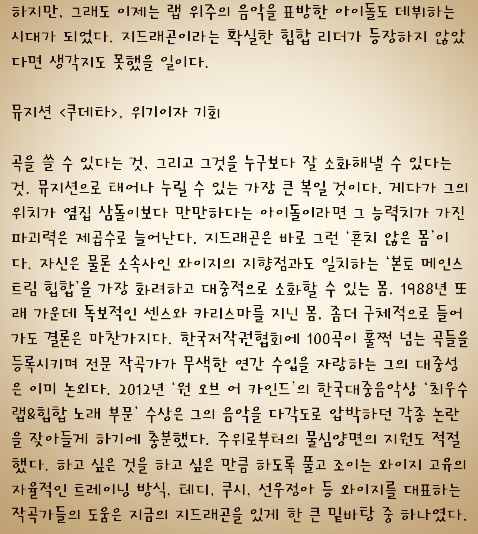 하지만, 그래도 이제는 랩 위주의 음악을 표방한 아이돌도 데뷔하는
시대가 되었다. 지드래곤이라는 확실한 힙합 리더가 등장하지 않았
다면 생각지도 못했을 일이다.
뮤지션 <쿠데타>, 위기이자 기회
곡을 쓸 수 있다는 것, 그리고 그것을 누구보다 잘 소화해낼 수 있다는
것. 뮤지션으로 태어나 누릴 수 있는 가장 큰 복일 것이다. 게다가 그의
위치가 옆집 삼돌이보다 만만하다는 아이돌이라면 그 능력치가 가진
파괴력은 제곱수로 늘어난다. 지드래곤은 바로 그런 '흔치 않은 몸'이
다. 자신은 물론 소속사인 와이지의 지향점과도 일치하는 '본토 메인스
트림 힙합'을 가장 화려하고 대중적으로 소화할 수 있는 몸. 1988년 또
래 가운데 독보적인 센스와 카리스마를 지닌 몸. 좀더 구체적으로 들어
가도 결론은 마찬가지다. 한국저작권협회에 100곡이 훌쩍 넘는 곡들을
등록시키며 전문 작곡가가 무색한 연간 수입을 자랑하는 그의 대중성
은 이미 논외다. 2012년 '원 오브 어 카인드'의 한국대중음악상 '최우수
랩&힙합 노래 부문' 수상은 그의 음악을 다각도로 압박하던 각종 논란
을 잦아들게 하기에 충분했다. 주위로부터의 물심양면의 지원도 적절
했다. 하고 싶은 것을 하고 싶은 만큼 하도록 풀고 조이는 와이지 고유의
자율적인 트레이닝 방식, 테디, 쿠시, 선우정아 등 와이지를 대표하는
작곡가들의 도움은 지금의 지드래곤을 있게 한 큰 밑바탕 중 하나였다.